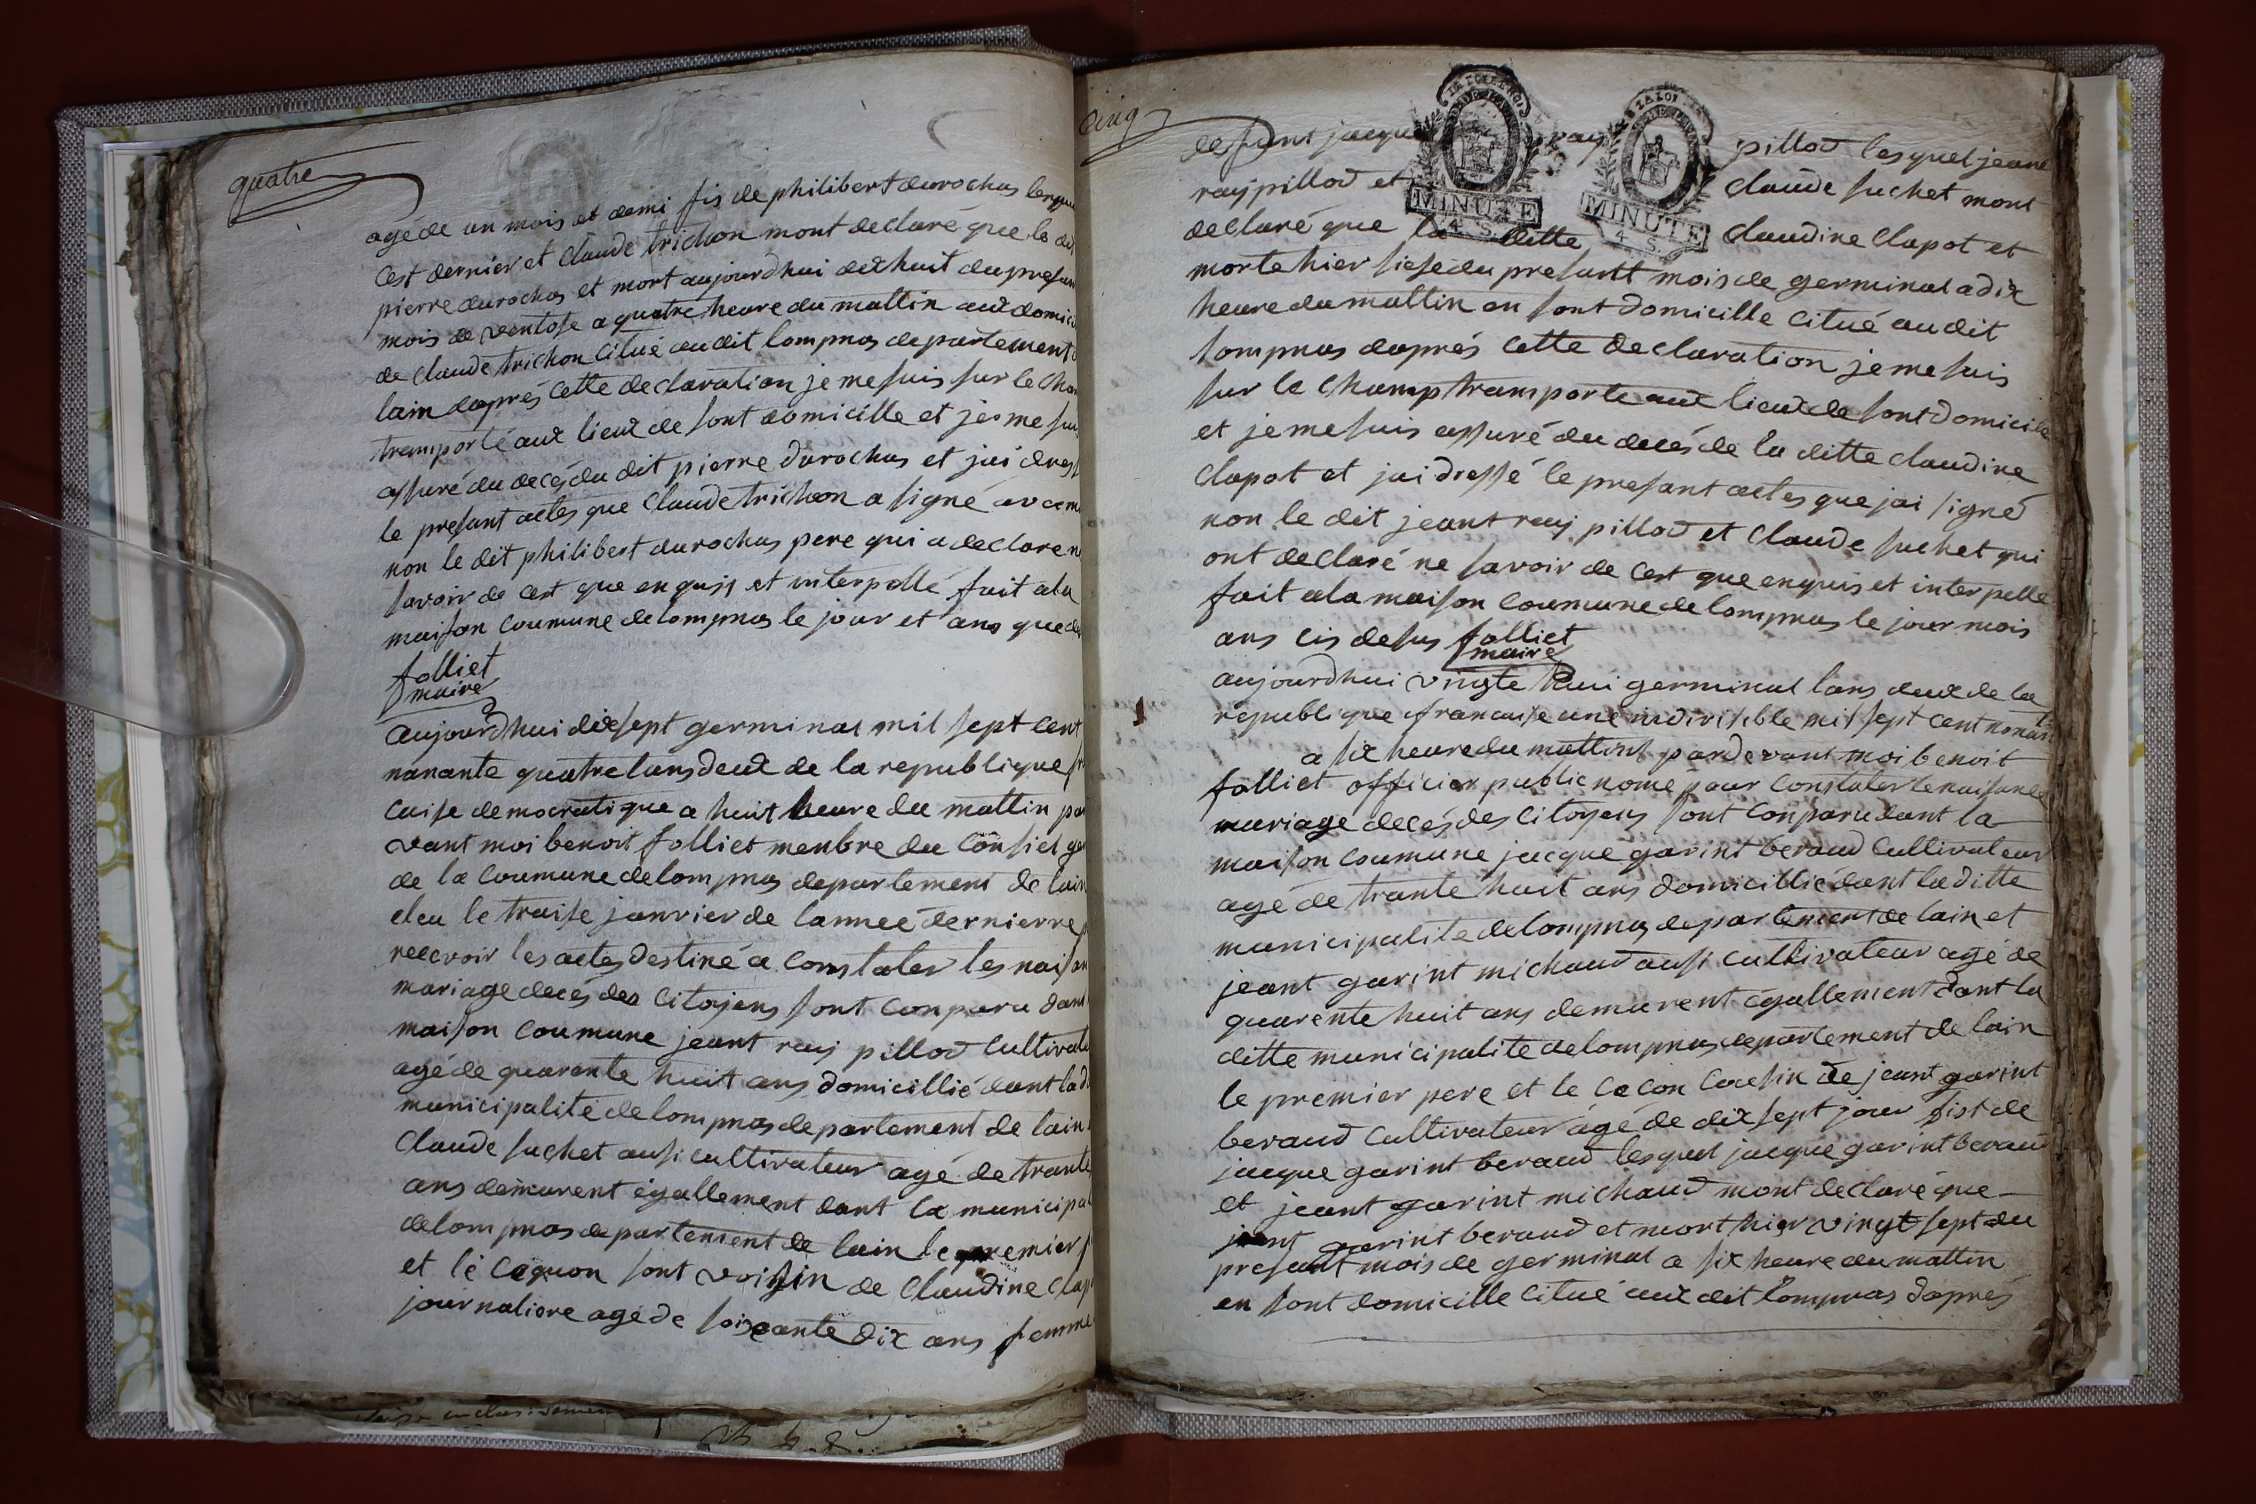 quatre
agé de un mois et demi fis de philibert durochas lesque
cest dernier et claude trichon mont declaré que le dit
pierre durochas et mort aujourdhui dix huit du presan
mois de ventose a quatre heure du mattin aux domici
de claude trichon citué au dit lompnas departement
lain daprés cette declaration je me suis sur le cham
tramporté aux lieux de sont domicille et je me suis
assuré du decés du dit pierre durochas et jai dress
le presant actes que claude trichon a signé avec m
non le dit philibert durochas pere qui a declare n
savoir de cest que enquis et interpellé fait a la
maison coumune de lompnas le jour et ans que de
folliet
maire
aujourdhui dix sept germinal mil sept cent
nonante quatre lans deux de la republique fr
caise democratique a huit heure du mattin par
vant moi benoit folliet menbre du consiel ge
de la coumune de lompnas departement de lain
eleu le traise janvier de lannee dernierre p
recevoir les actes destiné a constater les naisan
mariage decés des citoyens sont conparu dans
maison coumune jeant ray pillod cultivate
agé de quarante huit ans domicillié dant la d
municipalité de lompnas departement de lain
claude suchet ausi cultivateur agé de trante
ans demeurent égallement dant la municipal
de lompnas departement de lain le premier
et le cegnon sont voisin de claudine clap
journaliere age de soixante dix ans femme
cinq
defunt jacque ray pillod lesquel jeant
ray pillod et claude suchet mont
MINUTE
4 S.
LA LOI
MINUTE
4 S.
declaré que la ditte claudine clapot et
morte hier siese du presantt mois de germinal a dix
heure du mattin en sont domicille citué au dit
lompnas daprés cette declaration je me suis
sur le champ tramporte aux lieux de sont domicile
et je me suis assuré du decés de la ditte claudine
clapot et jai dressé le presant actes que jai signé
non le dit jeant ray pillod et claude suchet qui
ont declaré ne savoir de cest que enquis et interpelle
fait a la maison coumune de lompnas le jour mois
ans cis desus folliet
maire
aujourdhui vingte hui germinal lans deux de la
republique francaise une indivisible mil sept cent nonan
a six heure du mattint pardevant moi benoit
folliet officier public nomé pour constater le naisance
mariage decés des citoyens sont conparu dant la
maison coumune jacque garint beraud cultivateur
agé de trante huit ans domicillié dant la ditte
municipalite de lompnas departement de lain et
jeant garint michaud ausi cultivateur agé de
quarente huit ans demeurent égallement dant la
ditte municipalité de lompnas departement de lain
le premier pere et le cecon cousin de jeant garint
beraud cultivateur agé de dix sept jour fist de
jacque garint beraud lesquel jacque garint beraud
et jeant garint michaud mont declaré que
jeant garint beraud et mort hier vingt sept du
presant mois de germinal a six heure du mattin
en sont domicille citué aux dit lompnas daprés